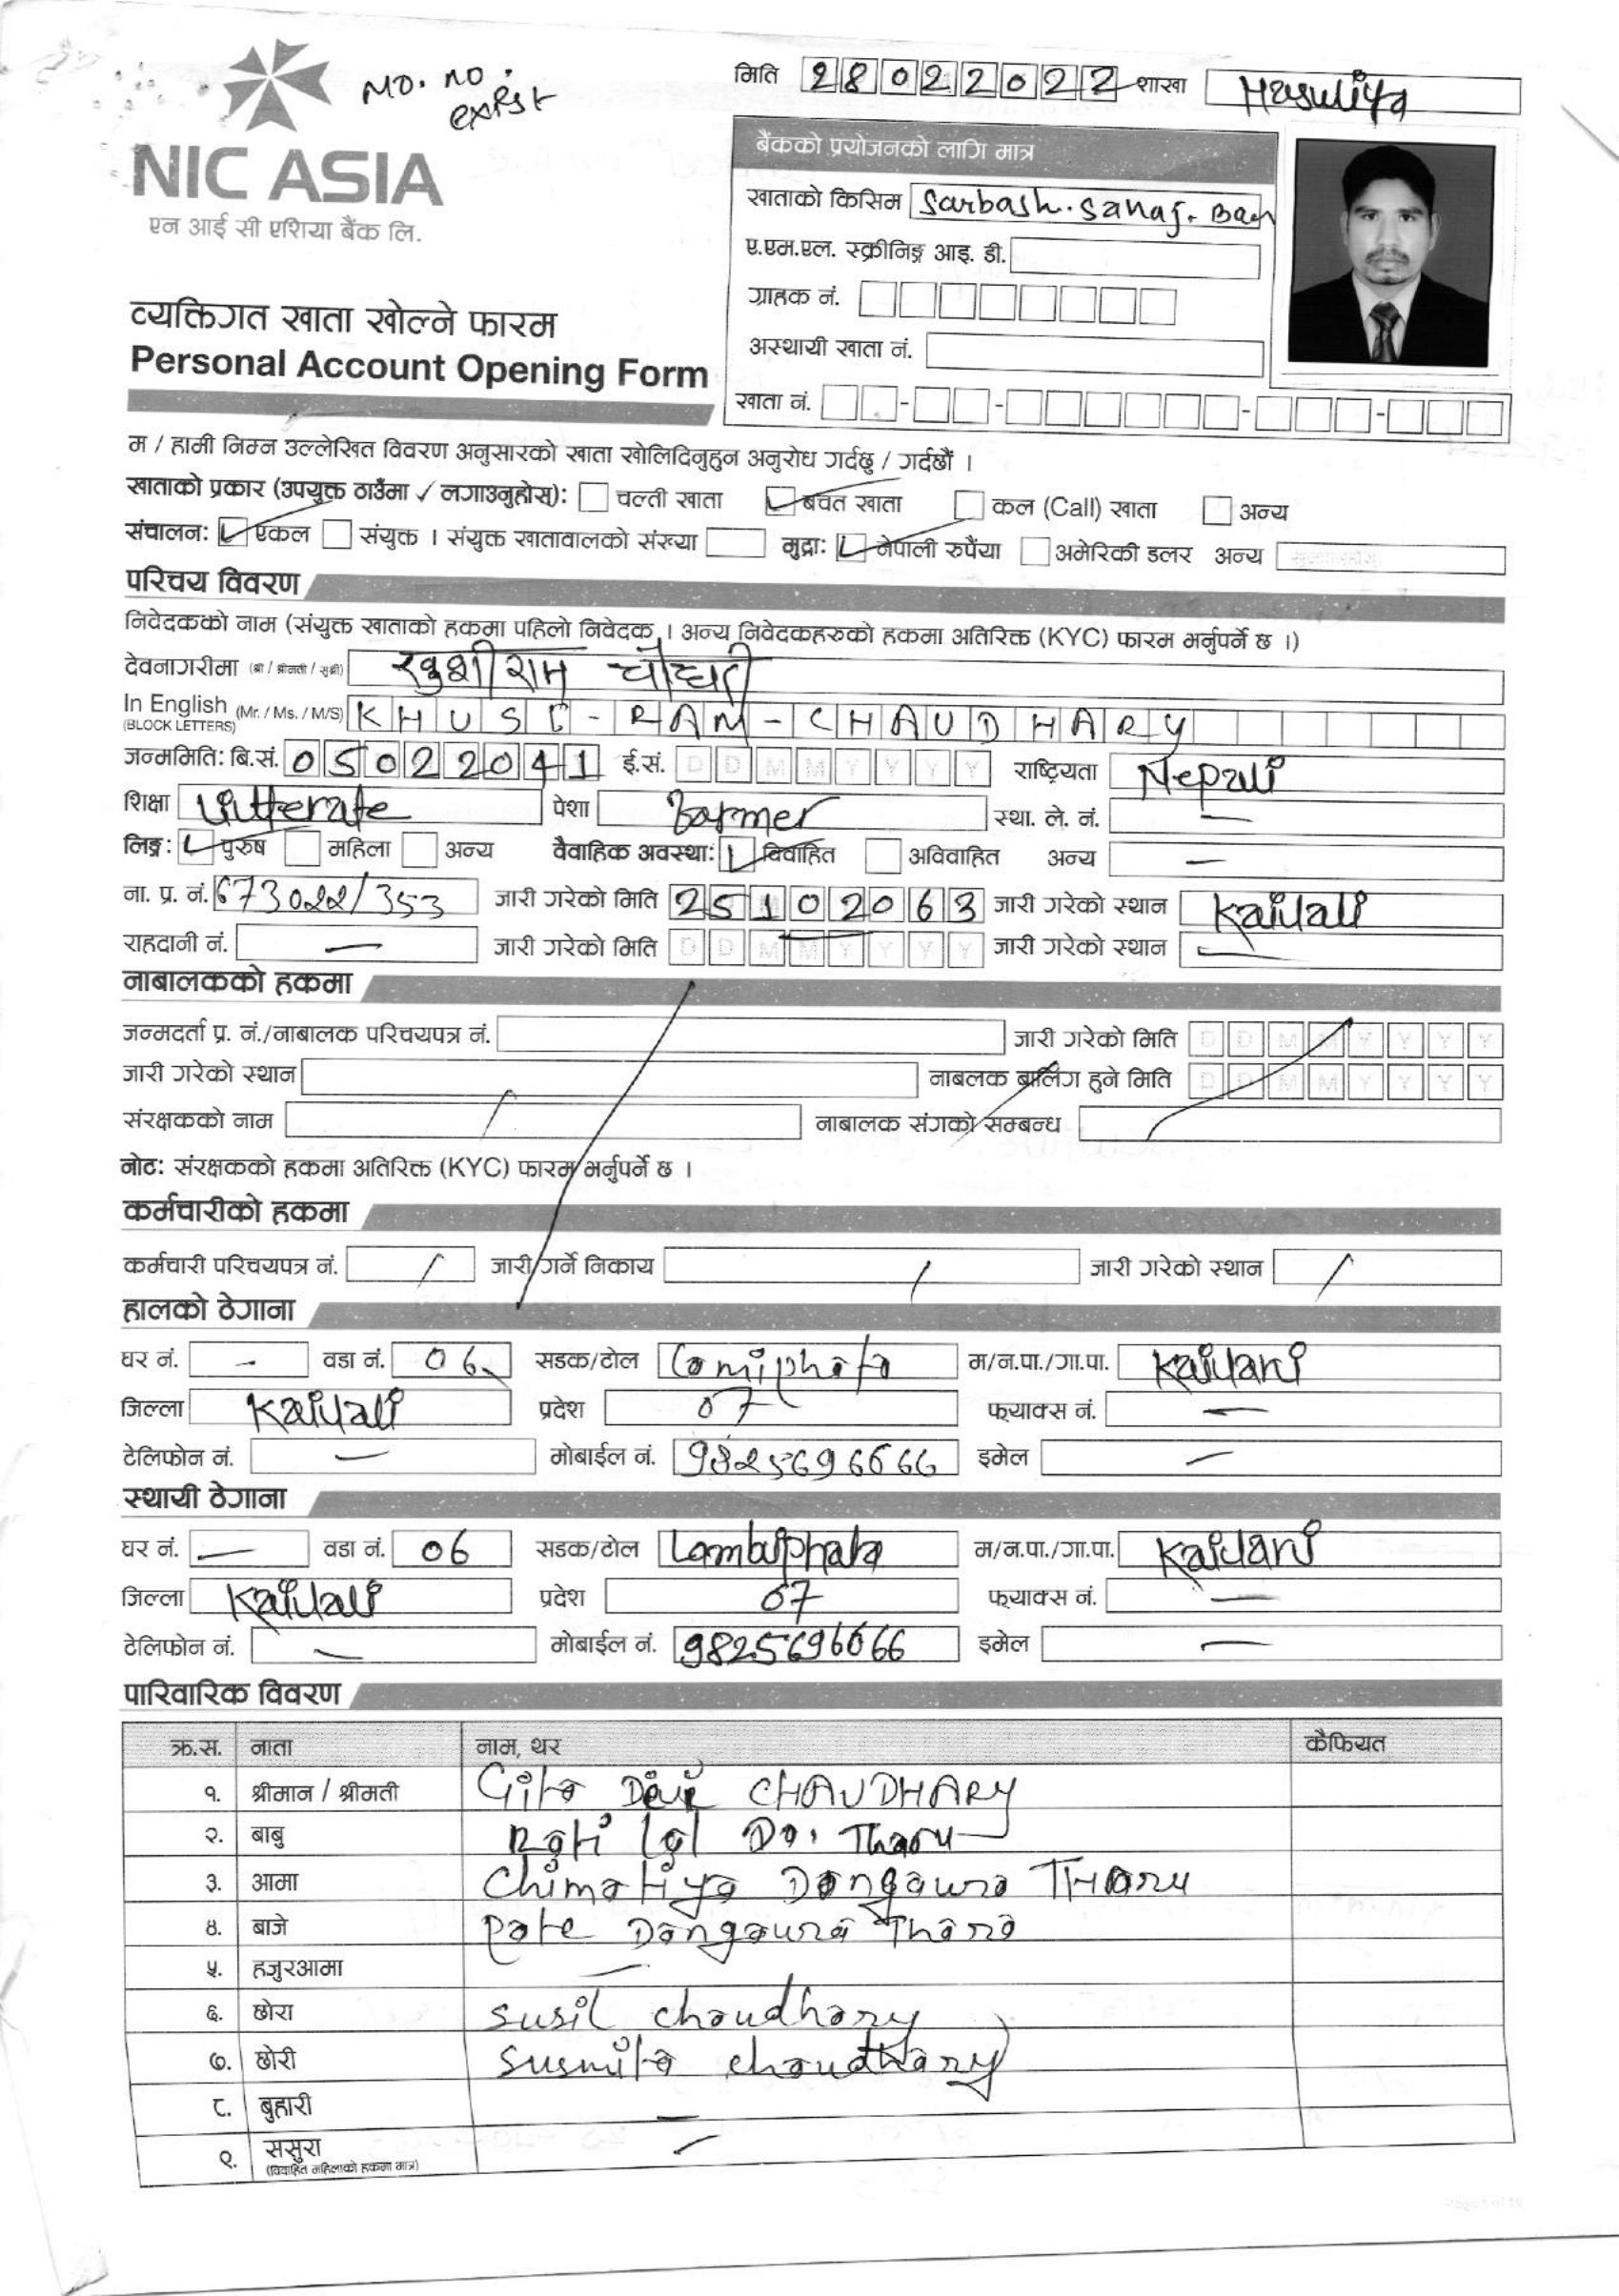 MO. NO. exist
मिति 28022022 शाखा Hasuliya
NIC ASIA
एन आई सी एशिया बैंक लि.
बैंकको प्रयोजनको लागि मात्र
खाताको किसिम Sarbash. Sanaj. Bach
ए.एम.एल. स्क्रीनिङ्ग आइ. डी.
ग्राहक नं.
अस्थायी खाता नं.
खाता नं.
व्यक्तिगत खाता खोल्ने फारम
Personal Account Opening Form
म / हामी निम्न उल्लेखित विवरण अनुसारको खाता खोलिदिनुहुन अनुरोध गर्दछु / गर्दछौं ।
खाताको प्रकार (उपयुक्त ठाउँमा ✓ लगाउनुहोस्): चल्ती खाता बचत खाता कल (Call) खाता अन्य
संचालन: एकल संयुक्त । संयुक्त खातावालको संख्या मुद्रा: नेपाली रुपैंया अमेरिकी डलर अन्य
परिचय विवरण
निवेदकको नाम (संयुक्त खाताको हकमा पहिलो निवेदक । अन्य निवेदकहरुको हकमा अतिरिक्त (KYC) फारम भर्नुपर्ने छ ।)
देवनागरीमा (श्री / श्रीमती / सुश्री) खुशीराम चौधरी
In English (Mr. / Ms. / M/S) KHUSI-RAM-CHAUDHARY
(BLOCK LETTERS)
जन्ममिति: बि.सं. 05022041 ई.सं. DDMMYYYY राष्ट्रियता Nepali
शिक्षा Litterate पेशा Farmer स्था. ले. नं. —
लिङ्ग: पुरुष महिला अन्य वैवाहिक अवस्था: विवाहित अविवाहित अन्य —
ना. प्र. नं. 673022/353 जारी गरेको मिति 25102063 जारी गरेको स्थान Kailali
राहदानी नं. — जारी गरेको मिति DDMMYYYY जारी गरेको स्थान —
नाबालकको हकमा
जन्मदर्ता प्र. नं./नाबालक परिचयपत्र नं. जारी गरेको मिति DDMMYYYY
जारी गरेको स्थान नाबलक बालिग हुने मिति DDMMYYYY
संरक्षकको नाम नाबालक संगको सम्बन्ध
नोट: संरक्षकको हकमा अतिरिक्त (KYC) फारम भर्नुपर्ने छ ।
कर्मचारीको हकमा
कर्मचारी परिचयपत्र नं. जारी गर्ने निकाय जारी गरेको स्थान
हालको ठेगाना
घर नं. - वडा नं. 06 सडक/टोल म/न.पा./गा.पा. Kailari
जिल्ला Kailali प्रदेश 07 फ्याक्स नं. —
टेलिफोन नं. — मोबाईल नं. 9825696666 इमेल —
स्थायी ठेगाना
घर नं. — वडा नं. 06 सडक/टोल Lambiphata म/न.पा./गा.पा. Kailari
जिल्ला Kailali प्रदेश 07 फ्याक्स नं. —
टेलिफोन नं. — मोबाईल नं. 9825696666 इमेल —
पारिवारिक विवरण
क्र.स. नाता नाम, थर कैफियत
१. श्रीमान / श्रीमती Gita Devi CHAUDHARY
२. बाबु Rati lal Da. Tharu
३. आमा Chimatiya Dangaura THaru
४. बाजे Pate Dangaura Tharu
५. हजुरआमा —
६. छोरा Susil chaudhary
७. छोरी Susmita chaudhary
८. बुहारी —
९. ससुरा —
(विवाहित महिलाको हकमा मात्र)